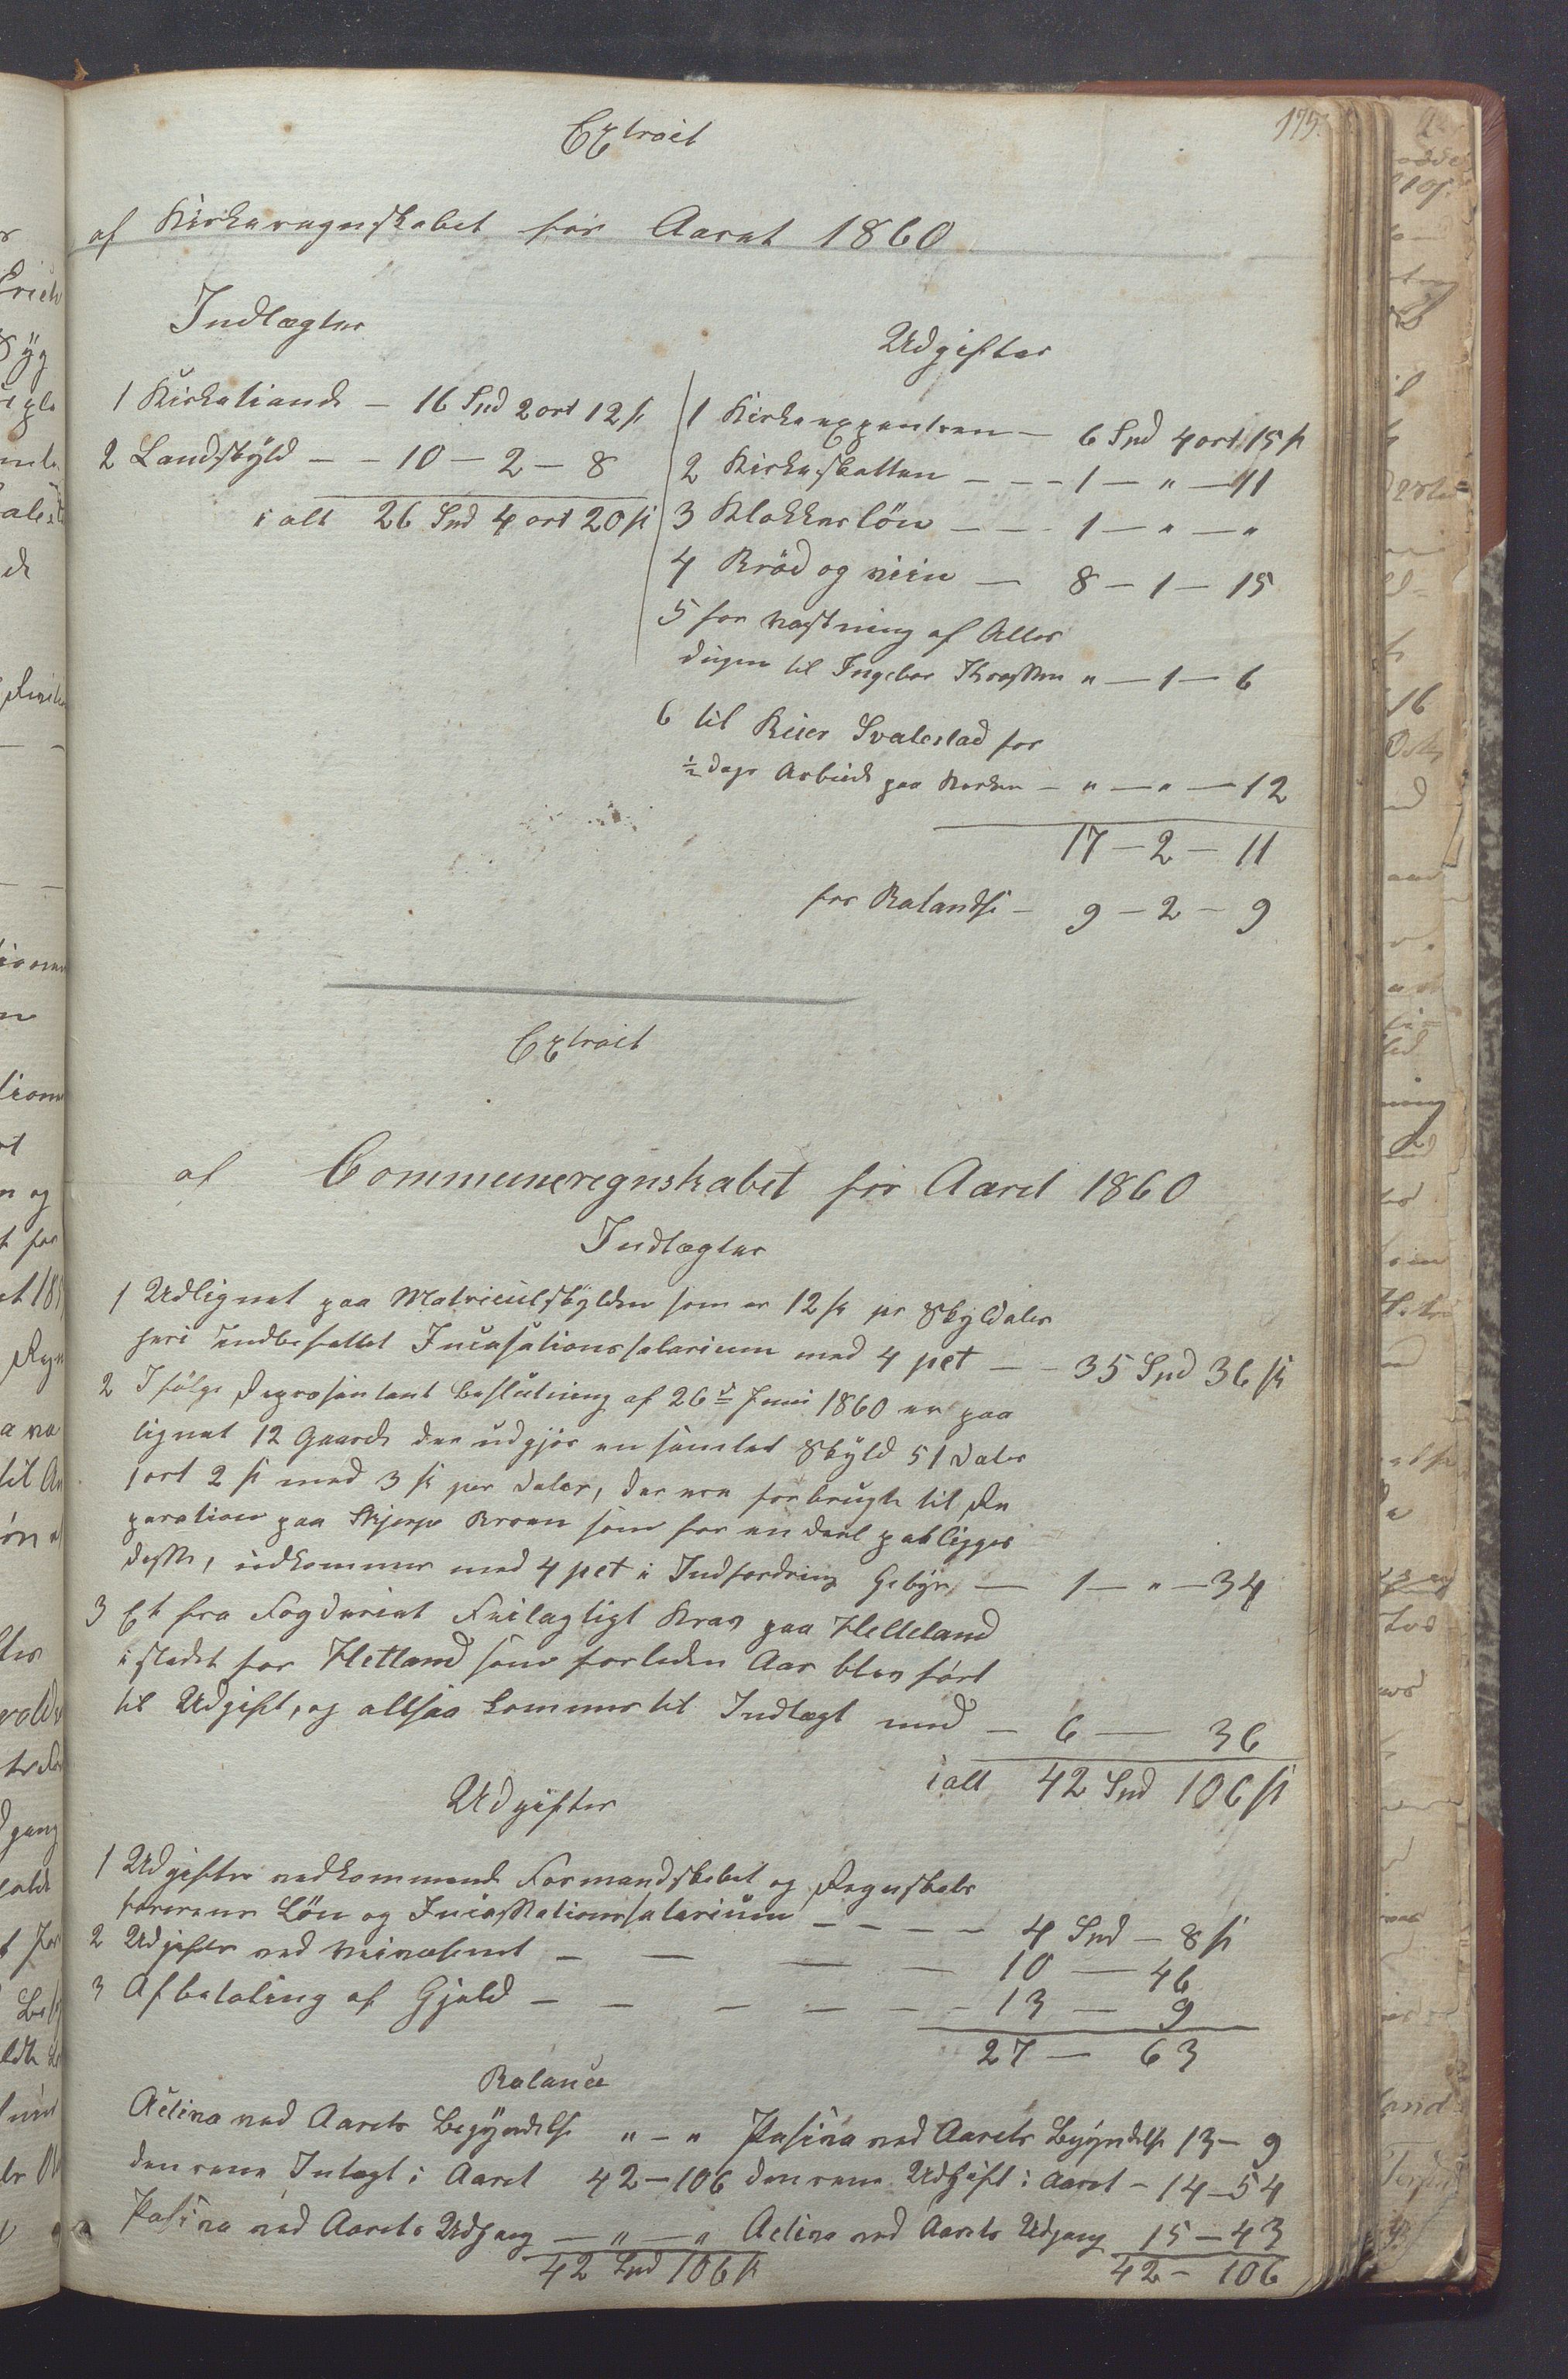 175.
Extrait
af Kirkeregnskabet for Aaret 1860
Indtægter
1 Kirketiende – 16 Spd 2 ort 12 s
2 Landskyld – – 10 – 2 – 8
i alt 26 Spd 4 ort 20 s
Udgifter
1 Kirkeexpentsen – 6 Spd 4 ort 15 s
2 Kirkeskatten – – – 1 – " – 11
3 Klokkerlön – – – 1 – " – "
4 Bröd og viin – 8 – 1 – 15
5 for vaskning af Alter
dugen til Ingebor " – 1 – 6
6 til Reier Svalestad for
½ dags Arbeide paa Kirken – " – " – 12
17 – 2 – 11
for Balandse – 9 – 2 – 9
Extrait
af Communeregnskabet for Aaret 1860
Indtægter
1 Udlignet paa Matriculskylden som er 12 s pr Skyldaler
heri indbefattet Incasationssalarium med 4 pct – – 35 Spd 36 s
2 Ifølge Repræsentant beslutning af 26d Juni 1860 er paa
lignet 12 Gaarde der udgjör en samlet Skyld 51 daler
1 ort 2 s med 3 s per daler, der ere forbrugte til Re
paration paa Broen som for en deel paaligger
disse, udkommer med 4 pct i Indfordring Gebyr – 1 – " – 34
3 Et fra Fogderiet Feilagtigt Krav paa Helleland
istedet for Hetland som forleden Aar blev ført
til Udgift, og altsaa kommer til Indtægt med – 6 – 36
i alt 42 Spd 106 s
Udgifter
1 Udgifter vedkommende Formandskabet og Regnskabs
førerens Lön og Incassationssalarium – – – – 4 Spd – 8 s
2 Udgifter ved Veivæsenet – – – – 10 – 46
3 Afbetaling af Gjeld – – – – – – 13 – 9
27 – 63
Balance
Activa ved Aarets Begyndelse " – " Pasiva ved Aarets Begyndelse 13 – 9
den rene Intægt i Aaret 42 – 106 den rene Udgift i Aaret – 14 – 54
Pasiva ved Aarets Udgang – " – " Activa ved Aarets Udgang 15 – 43
42 Spd 106 s 42 – 106